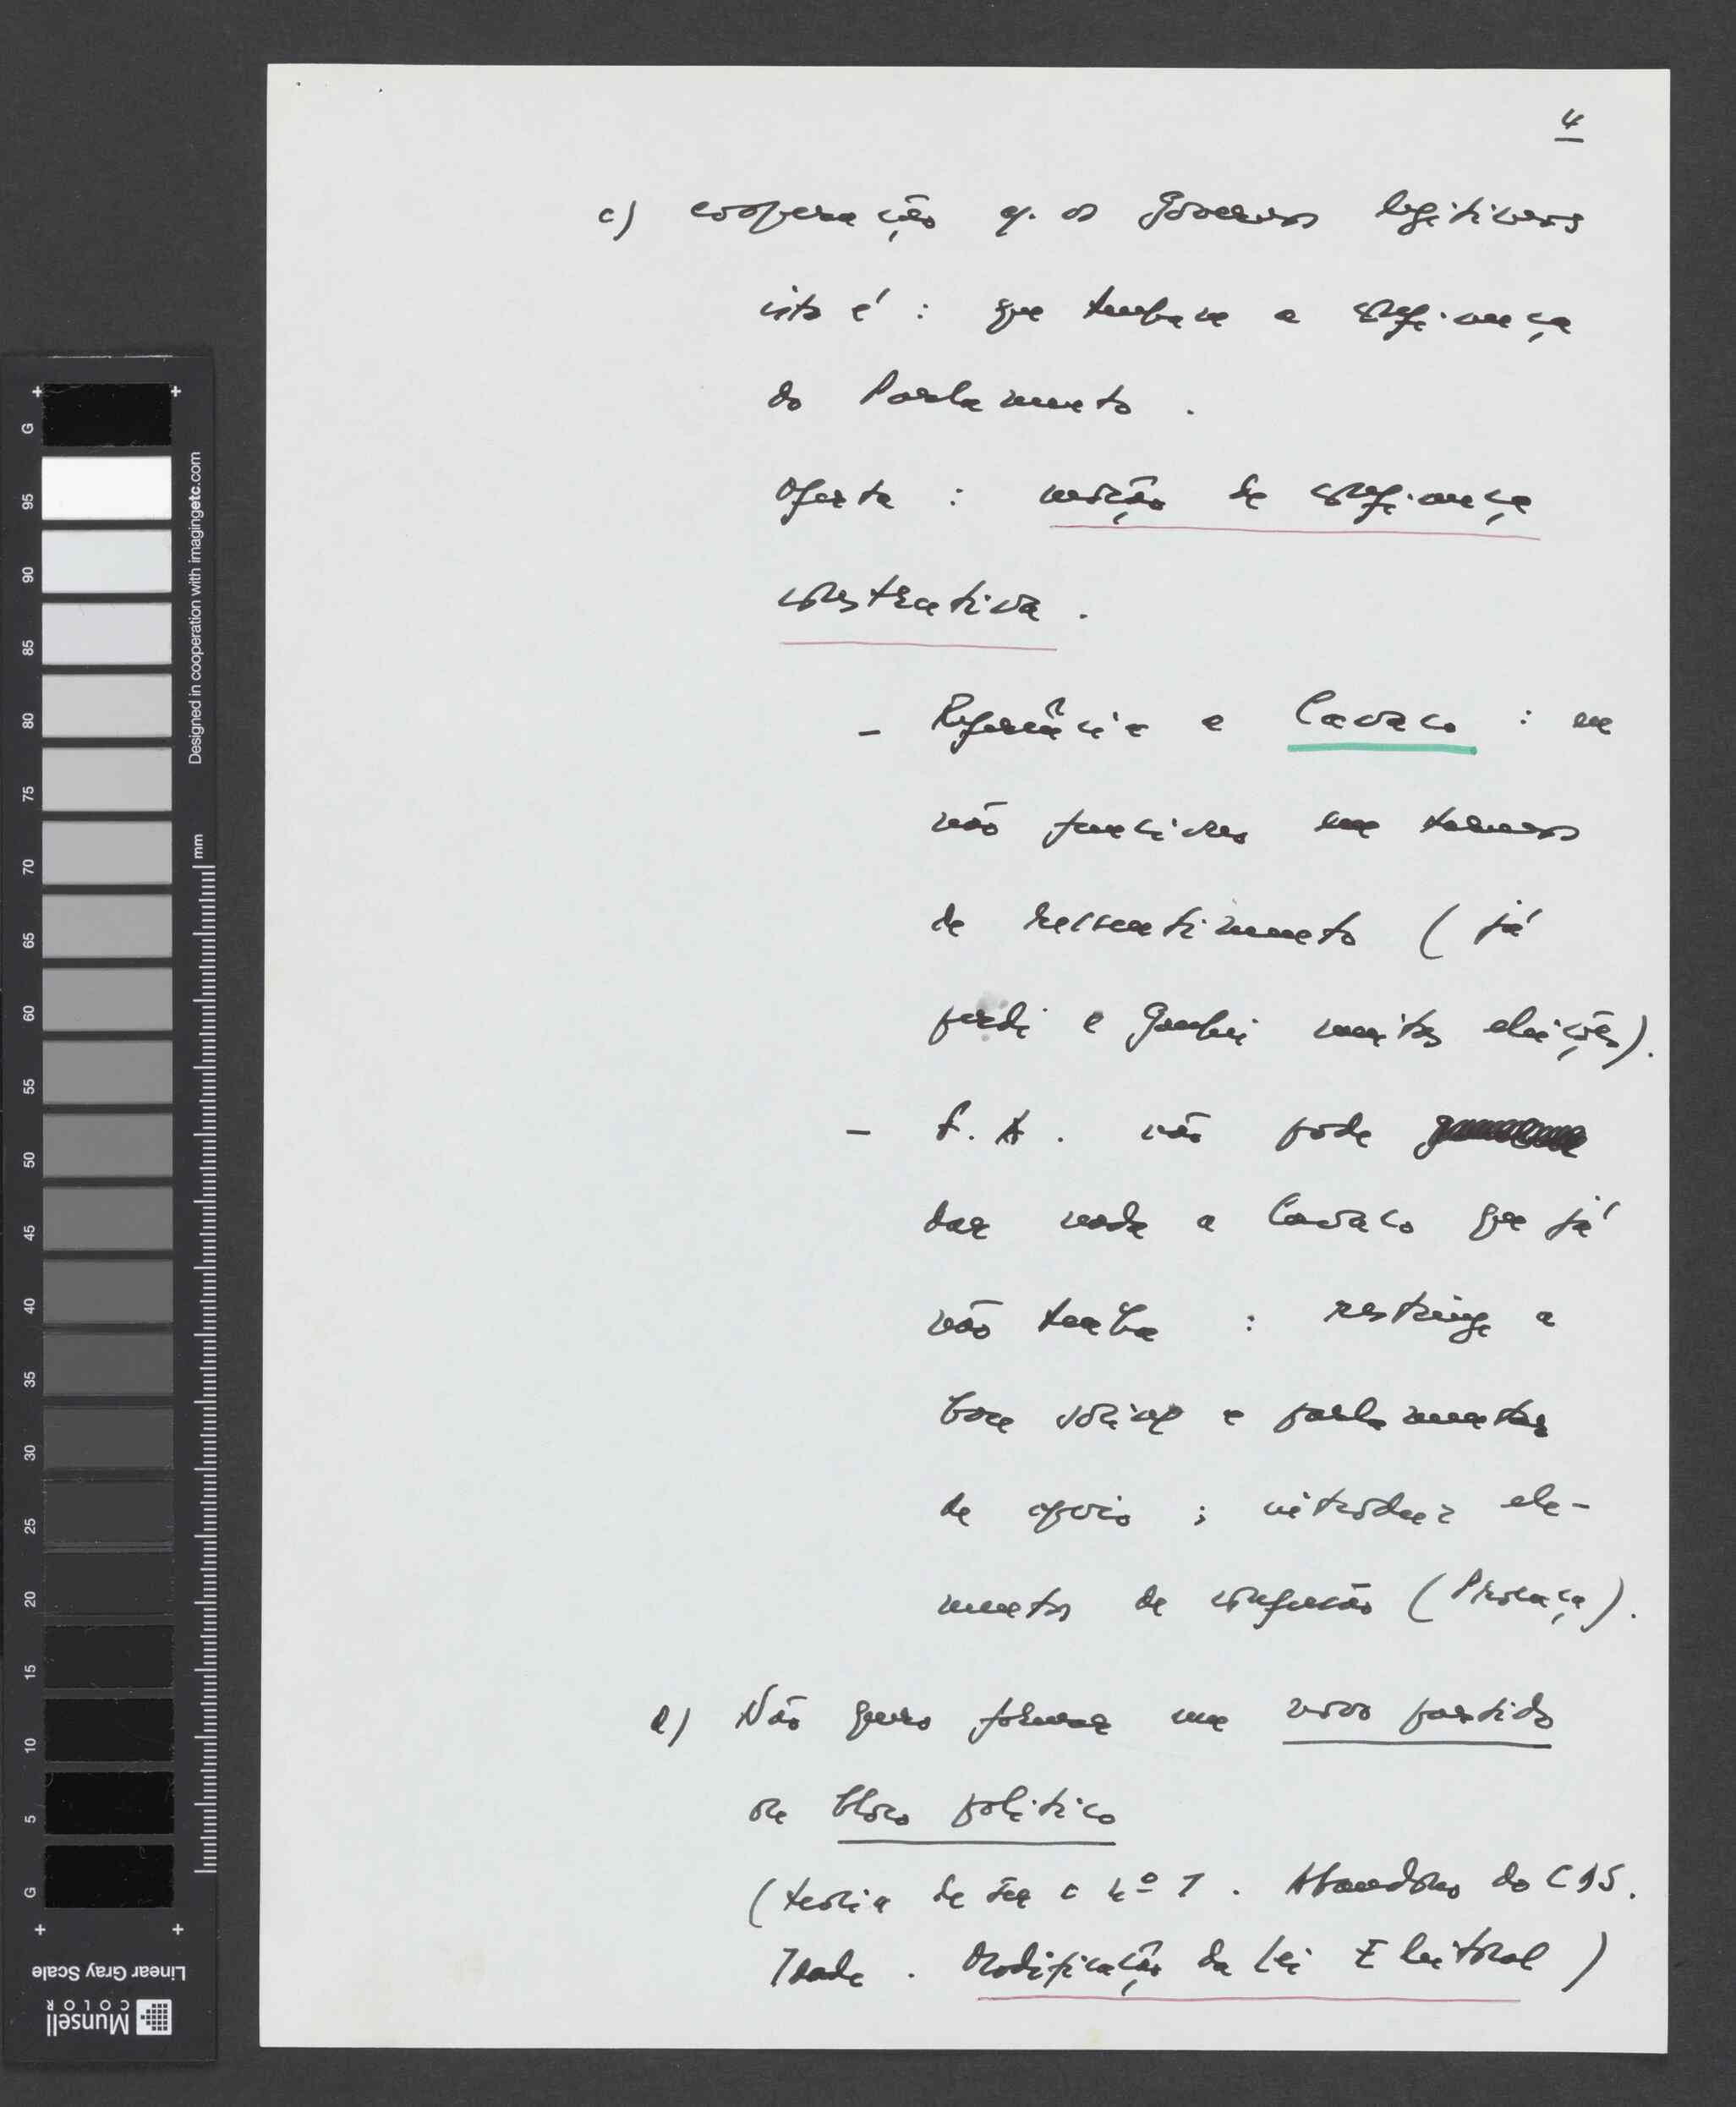 4
c) cooperação c/. os Governos legítimos
isto é : que tenham a confiança
do Parlamento .
Oferta : moção de confiança
construtiva .
- Referência a Cavaco : eu
não funciono em termos
de ressentimento ( já
perdi e Ganhei muitas eleições).
- F. A. não pode
dar nada a Cavaco que já
não tenha : restringe a
base social e parlamentar
de apoio ; introduz ele-
mentos de confusão ( ).
d) Não quero formar um novo partido
ou bloco político
(teoria de ser o nº 1 . Abandono do CDS.
Idade . Modificação da Lei Eleitoral )
G 95 90 85 80 75 70 65 60 55 50 45 40 35 30 25 20 15 10 5 G
Designed in cooperation with imagingetc.com
mm
Linear Gray Scale
Munsell
COLOR